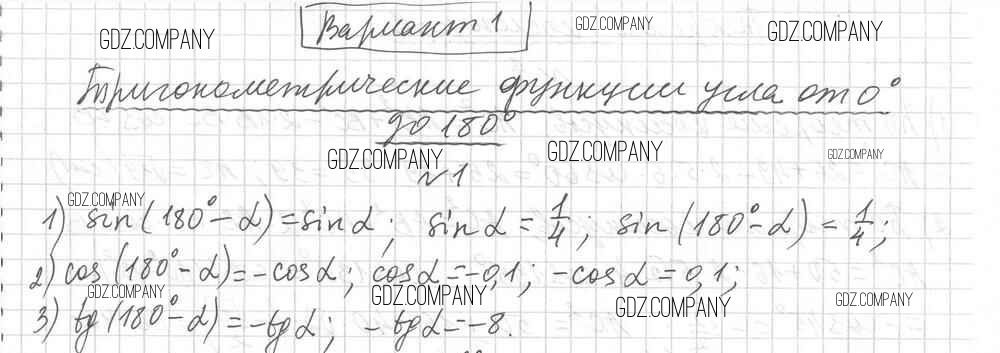 Вариант 1
GDZ.COMPANY GDZ.COMPANY GDZ.COMPANY
Тригонометрические функции угла от 0°
до 180°
GDZ.COMPANY GDZ.COMPANY GDZ.COMPANY
№1
GDZ.COMPANY
1) sin(180°-α)=sinα; sinα=1/4; sin(180°-α)=1/4;
2) cos(180°-α)=-cosα; cosα=-0,1; -cosα=0,1;
GDZ.COMPANY GDZ.COMPANY GDZ.COMPANY GDZ.COMPANY
3) tg(180°-α)=-tgα; -tgα=-8.